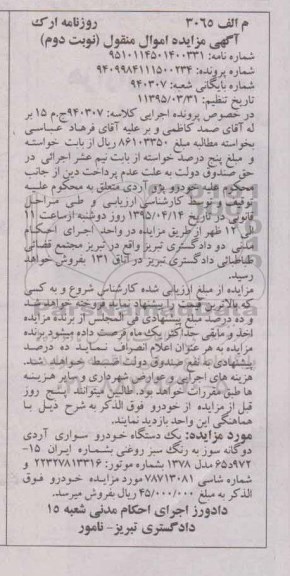 م الف ۳۰۶۵ روزنامه ارک
آگهی مزایده اموال منقول (نوبت دوم)
شماره نامه: ۹۵۱۰۱۱۴۵۰۱۴۰۰۳۳۱
شماره پرونده: ۹۴۰۹۹۸۴۱۱۱۵۰۰۲۳۴
شماره بایگانی شعبه: ۹۴۰۳۰۷
تاریخ تنظیم: ۱۳۹۵/۰۳/۳۱
در خصوص پرونده اجرایی کلاسه: ۹۴۰۳۰۷ج.م ۱۵ بر
له آقای صمد کاظمی و بر علیه آقای فرهاد عباسی
بخواسته مطالبه مبلغ ۸۶۱۰۳۳۵۰ ریال از بابت خواسته
و مبلغ پنج درصد خواسته از بابت نیم عشر اجرائی در
حق صندوق دولت به علت عدم پرداخت دین از جانب
محکوم علیه خودرو پژو آردی متعلق به محکوم علیه
توقیف و توسط کارشناسی ارزیابی و طی مراحل
قانونی در تاریخ ۱۳۹۵/۰۴/۱۴ روز دوشنبه ازساعت ۱۱
الی ۱۲ ظهر از طریق مزایده در واحد اجرای احکام
مدنی دو دادگستری تبریز واقع در تبریز مجتمع قضائی
طباطبائی دادگستری تبریز در اتاق ۱۳۱ بفروش خواهد
رسید.
مزایده از مبلغ ارزیابی شده کارشناس شروع و به کسی
که بالاترین قیمت را پیشنهاد نماید فروخته خواهد شد
ده درصد مبلغ پیشنهادی فی المجلس از برنده مزایده
اخذ و مابقی حداکثر یک ماه فرصت داده میشود برنده
مزایده به هر عنوان اعلام انصراف نماید ده درصد
پیشنهادی به نفع صندوق دولت ضبط خواهد شد.
هزینه های اجرایی و عوارض شهرداری و سایر هزینه
ها طبق مقررات خواهد بود. طالبین میتوانند پنج روز
قبل از مزایده از خودرو فوق الذکر به شرح ذیل با
هماهنگی این واحد بازدید نمایند.
مورد مزایده: یک دستگاه خودرو سواری آردی
دوگانه سوز به رنگ سبز روغنی بشماره ایران ۱۵-
۹۷۲د۶۵ مدل ۱۳۷۸ بشماره موتور: ۲۲۳۲۷۸۱۳۳۱۶ و
شماره شاسی ۷۸۷۱۳۰۸۱ مورد مزایده خودرو فوق
الذکر به مبلغ ۴۵/۰۰۰/۰۰۰ ریال بفروش میرسد.
دادورز اجرای احکام مدنی شعبه ۱۵
دادگستری تبریز- نامور